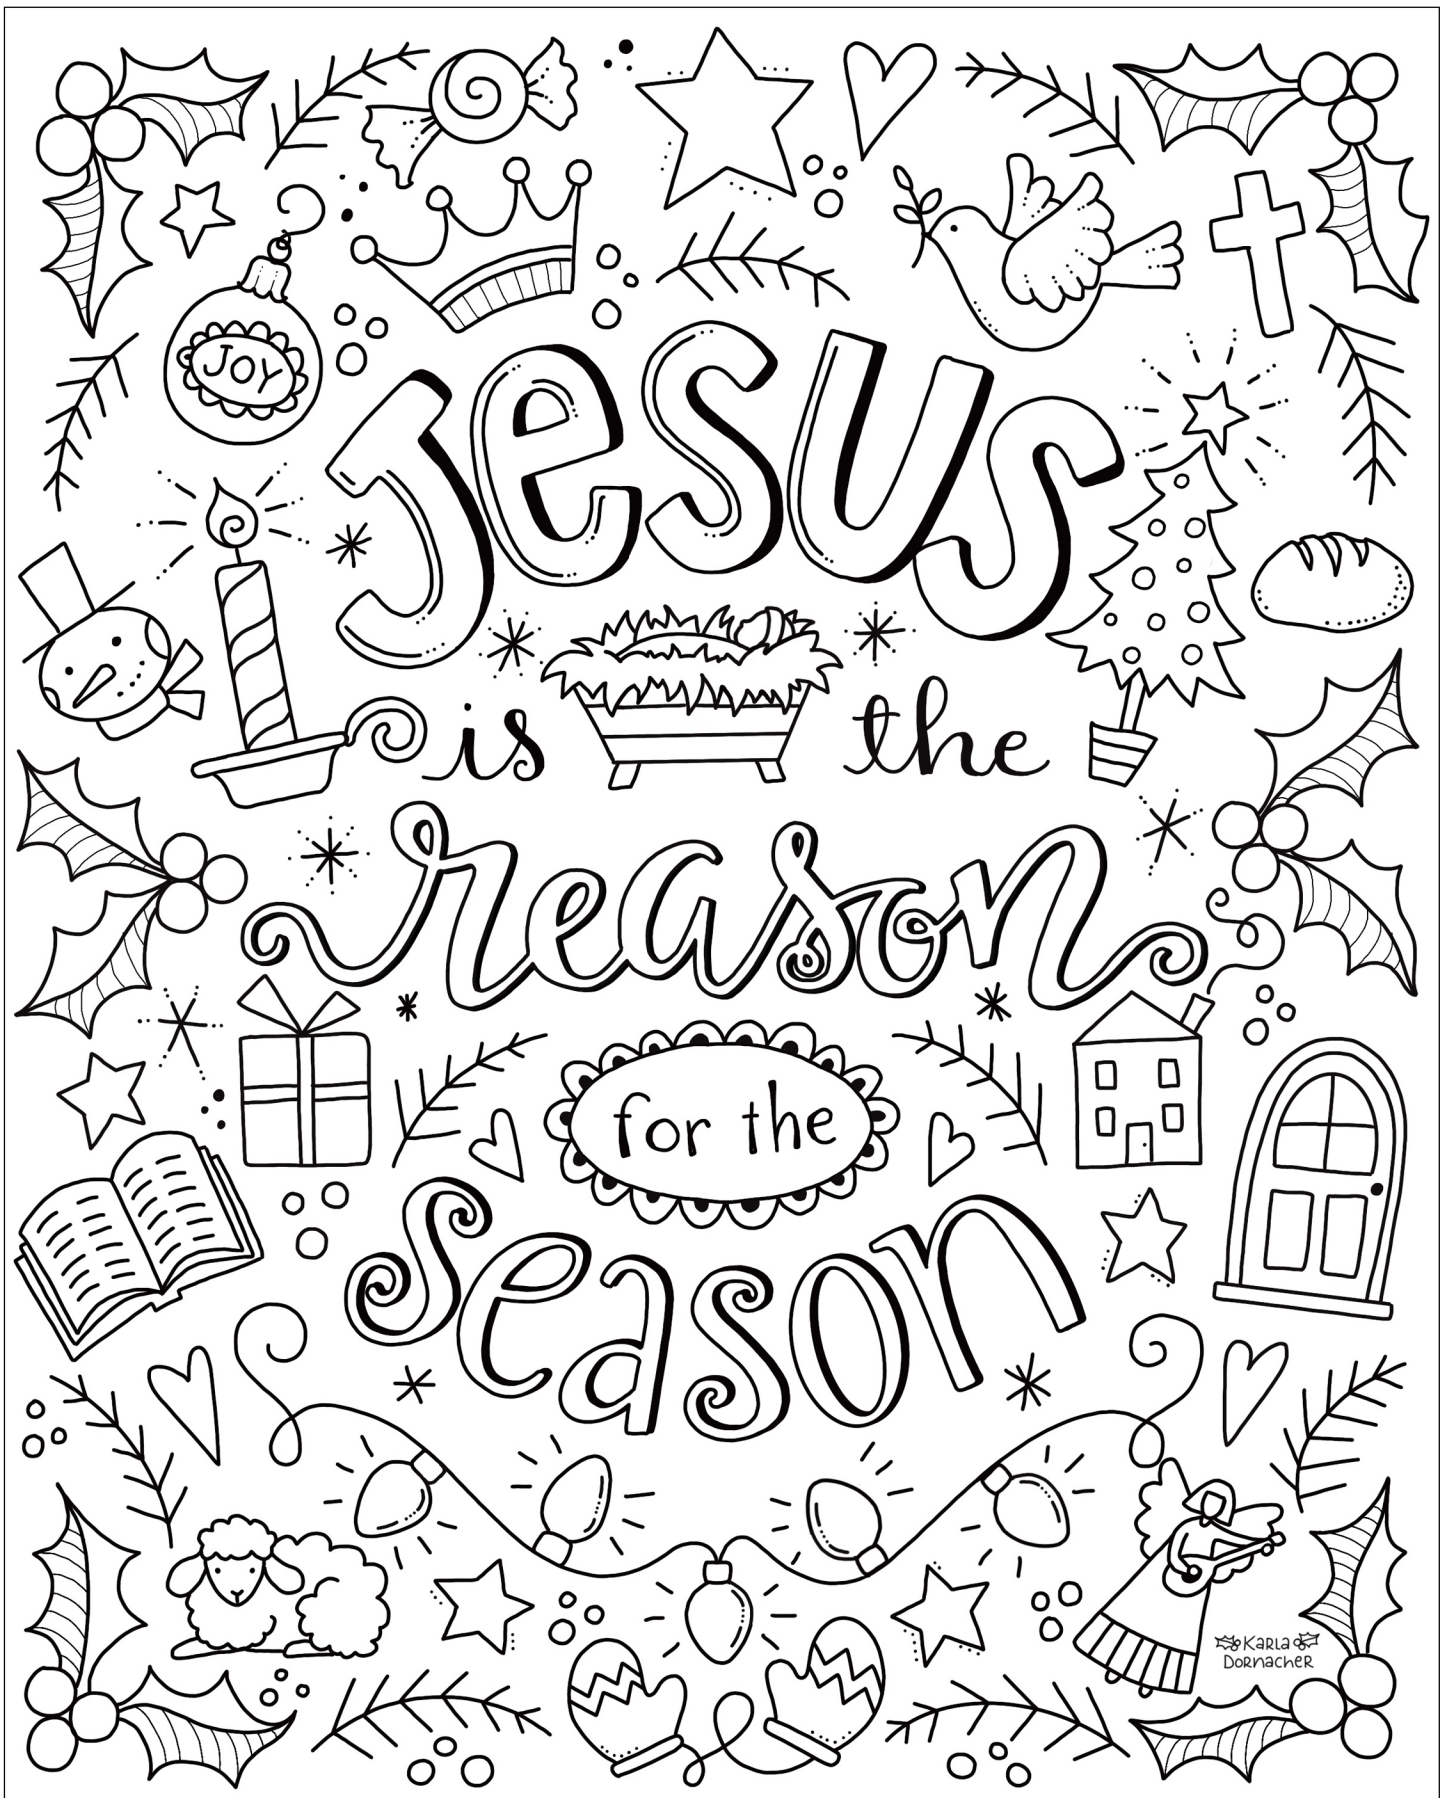 JOY
Jesus
is the
reason
for the
season
Karla
Dornacher